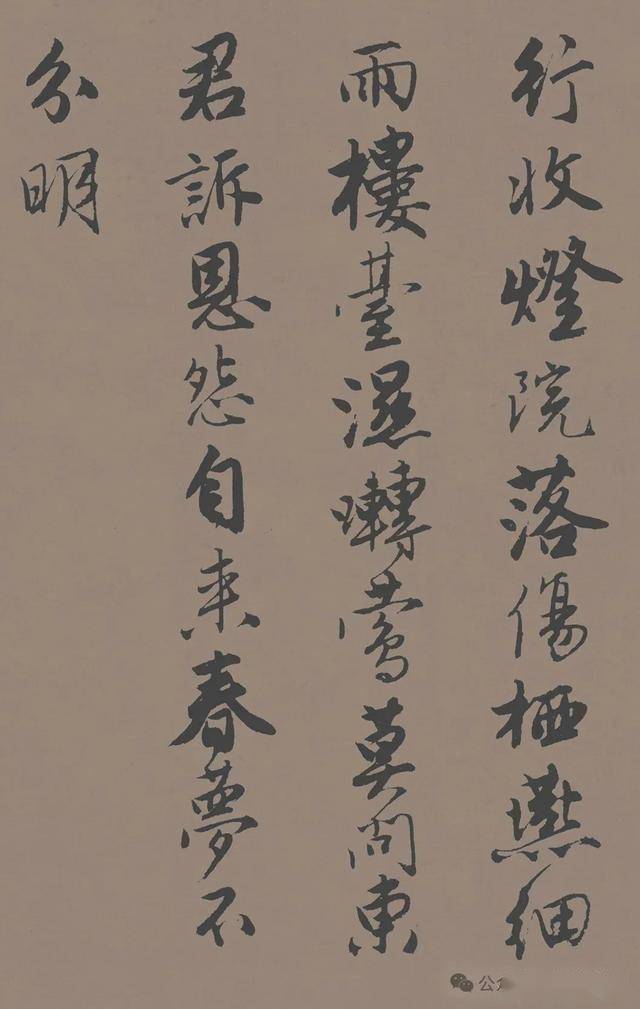 行收燈院落傷栖燕細
雨樓臺濕囀鶯莫問東
君訴恩怨自来春夢不
分明
公